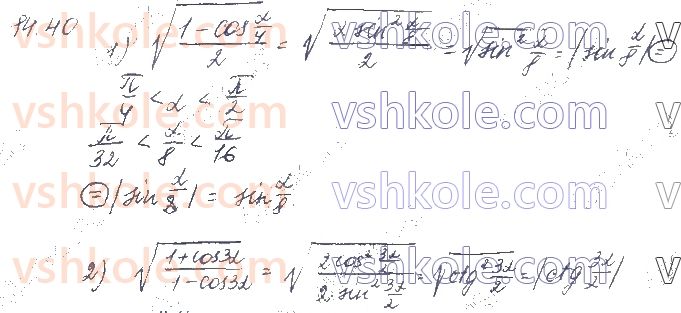 14.40
1) √((1 - cos α/4)/2) = √((2 sin² α/8)/2) = √(sin² α/8) = |sin α/8| ⊜
π/4 < α < π/2
π/32 < α/8 < π/16
⊜ |sin α/8| = sin α/8
2) √((1 + cos 3α)/(1 - cos 3α)) = √((2 cos² 3α/2)/(2 · sin² 3α/2)) = √(ctg² 3α/2) = |ctg 3α/2|
vshkole.com vshkole.com v
vshkole.com vshkole.com v
vshkole.com vshkole.com v
vshkole.com vshkole.com v